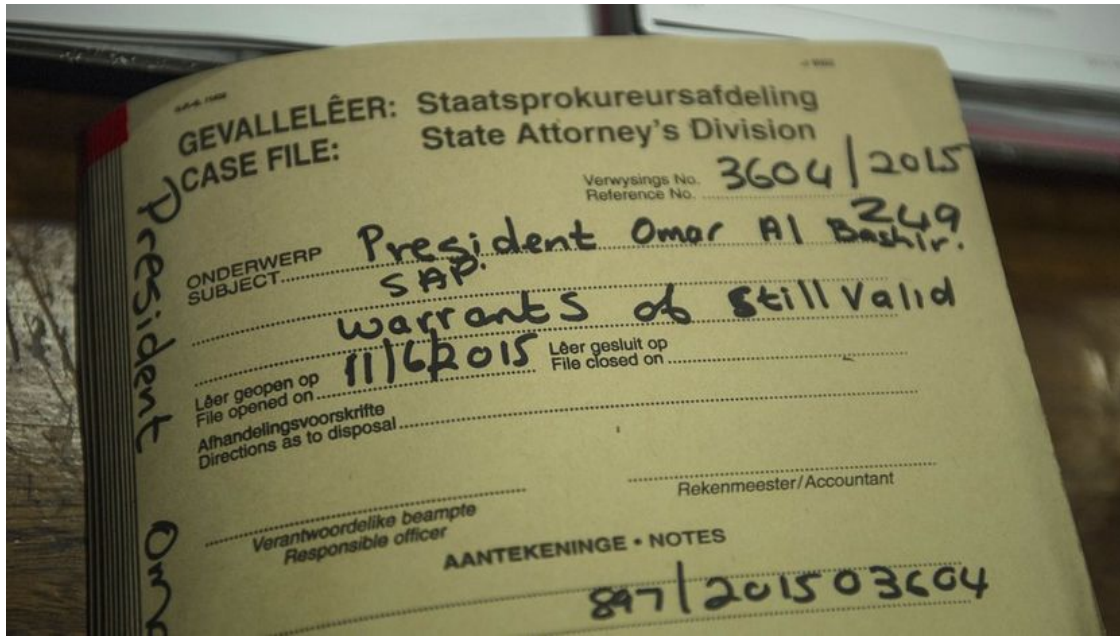 GEVALLELÊER: Staatsprokureursafdeling
CASE FILE: State Attorney's Division
Verwysings No.
Reference No. 3604/2015
249
ONDERWERP
SUBJECT President Omar Al Bashir.
SAP.
warrants of still Valid
Lêer geopen op
File opened on 11/6/2015
Lêer gesluit op
File closed on
Afhandelingsvoorskrifte
Directions as to disposal
Rekenmeester/Accountant
Verantwoordelike beampte
Responsible officer
AANTEKENINGE • NOTES
897/2015 03604
President